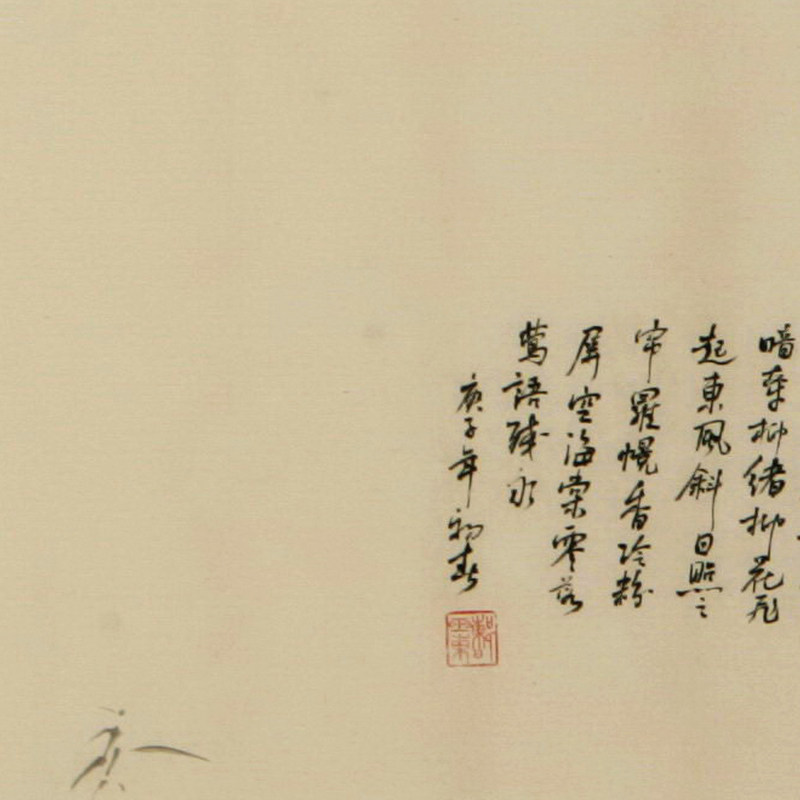 暗牵柳绪柳花飛
起東風斜日照之
帘羅幌香冷粉
屏空海棠零落
莺語残
庚子年初春